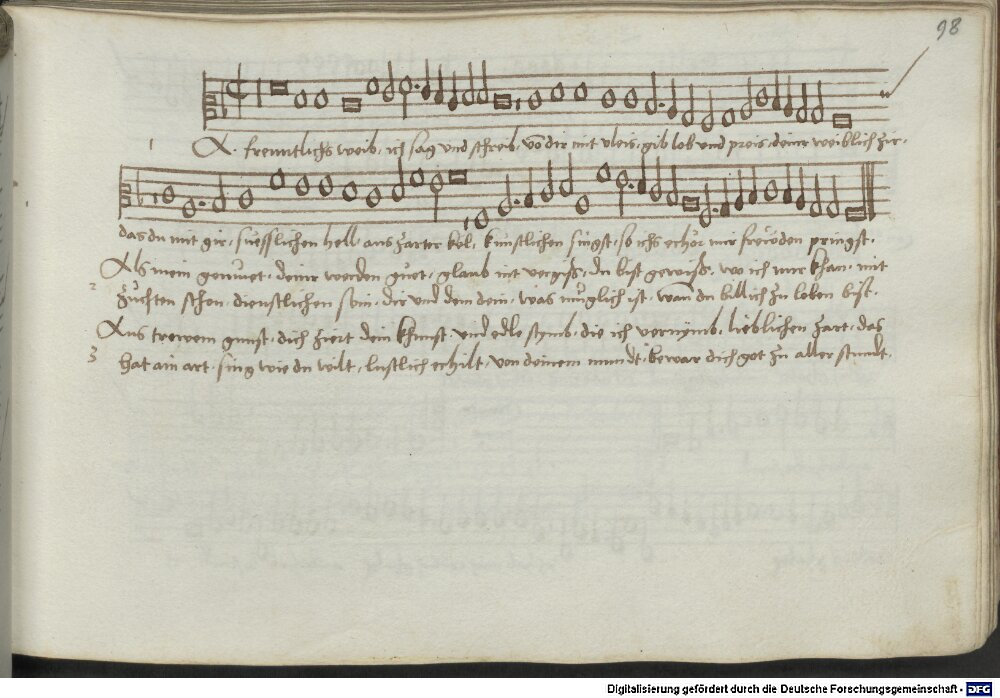 98
1 A. freuntlichs weib, ich sag und schreib, vo dir mit vleis, gib lob und preis, deinr weiblich zir,
das du mit gir, suesslichen hell aus zarter kel, kunstlichen singst, so ichs erhor mir frewden pringst.
2 Als mein gemuet, deinr werden guet, glaub mit vergiss, du bist gewiss, wo ich nur khan, mit
zuchten schon, dienstlichen sein, dir und dem dein, was muglich ist, wan du billich zu loben bist.
3 Aus trewem gunst, dich ziert dein khunst, und edle stymb, die ich vernymb, lieblichen zart, das
hat ain art, sing wie du wilt, lustlich erhilt, von deinem mundt, bewar dich got zu aller stundt.
Digitalisierung gefördert durch die Deutsche Forschungsgemeinschaft - DFG